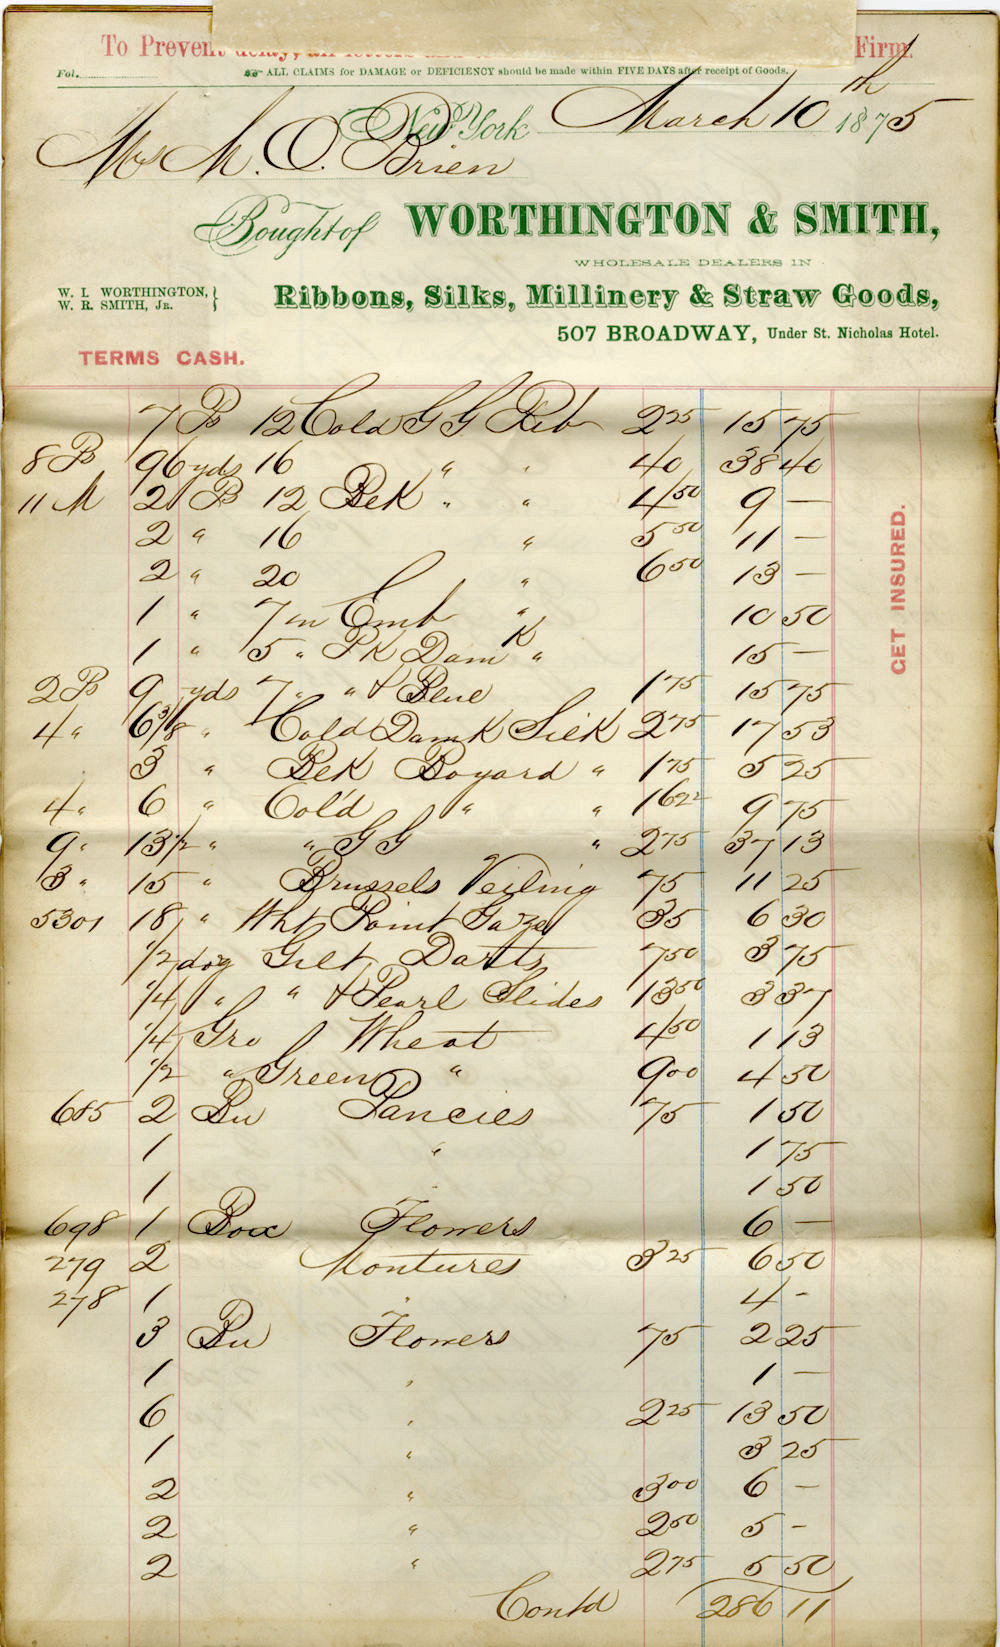 To Prevent delay, all letters Firm.
Fol. ALL CLAIMS for DAMAGE or DEFICIENCY should be made within FIVE DAYS after receipt of Goods.
New York March 10th 1875
Mrs M. O. Brien
Bought of WORTHINGTON & SMITH,
WHOLESALE DEALERS IN
W. I. WORTHINGTON,
W. R. SMITH, JR.
Ribbons, Silks, Millinery & Straw Goods,
507 BROADWAY, Under St. Nicholas Hotel.
TERMS CASH.
GET INSURED.
7 Ps 12 Cold G G Rib 2 25 15 75
8 Ps 96 yds 16 " " 40 38 40
11 M 2 Ps 12 Blk " " 4 50 9 —
2 " 16 " 5 50 11 —
2 " 20 " 6 50 13 —
1 " 7 in Emb " 10 50
1 " 5 " PK Damk " 15 —
2 Ps 9 yds 7 " " & Blue 1 75 15 75
4 " 6 3/8 " Cold Damk Silk 2 75 17 53
3 " Blk Boyard " 1 75 5 25
4 " 6 " Col'd " " 1 62 1/2 9 75
9 " 13 1/2 " " G G " 2 75 37 13
3 " 15 " Brussels Veiling 75 11 25
5301 18 " Wht Point Gaze 35 6 30
1/2 doz Gilt Darts 7 50 3 75
1/4 " " & Pearl Slides 13 50 3 37
1/4 Gro Wheat 4 50 1 13
1/2 " Green " 9 00 4 50
685 2 Bu Pancies 75 1 50
1 " 1 75
1 " 1 50
698 1 Box Flowers 6 —
279 2 Montures 3 25 6 50
278 1 " 4 -
3 Bu Flowers 75 2 25
1 " 1 —
6 " 2 25 13 50
1 " 3 25
2 " 3 00 6 —
2 " 2 50 5 -
2 " 2 75 5 50
Contd 286 11